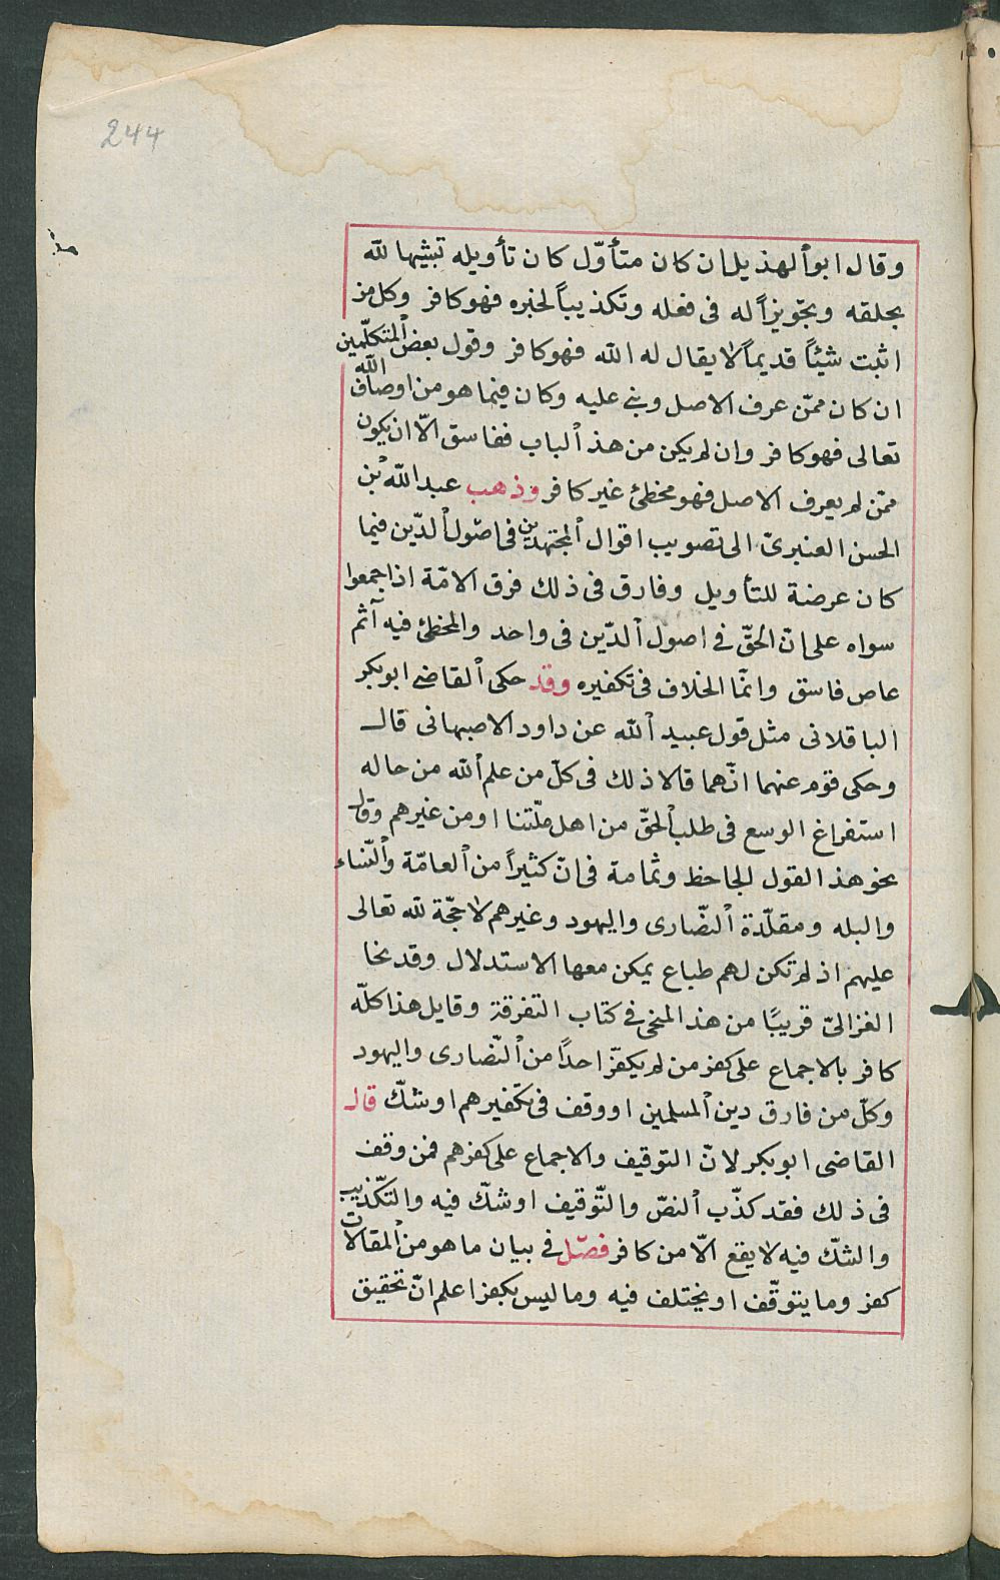 244
وقال ابو ألهذيل ان كان متأوّل كان تأويله تشبيها لله
بخلقه وتجويزاً له فى فعله وتكذيباً لخبره فهو كافر وكل من
اثبت شيئاً قديماً لا يقال له الله فهو كافر وقول بعض ألمتكلّمين
ان كان ممّن عرف الاصل وبنى عليه وكان فيما هو من اوصاف الله
تعالى فهو كافر وان لم يكن من هذ ألباب ففاسق الّا ان يكون
ممّن لم يعرف الاصل فهو مخطئ غير كافر وذهب عبد الله بْن
الحسن العنبرىّ الى تصويب اقوال ألمجتهدين فى اصول ألدّين فيما
كان عرضة للتأويل وفارق فى ذلك فرق الامّة اذا جمعوا
سواه على انّ الحقّ فى اصول ألدّين فى واحد والمخطئ فيه آثم
عاص فاسق وانّما الخلاف فى تكفيره وقد حكى ألقاضى ابو بكر
الباقلانى مثل قول عبيد ألله عن داود الاصبهانى قال
وحكى قوم عنهما انّهما قالا ذلك فى كلّ من علم ألله من حاله
استفراغ الوسع فى طلب ألحقّ من اهل ملّتنا او من غيرهم وقال
نحو هذ القول الجاحظ وثمامة فى انّ كثيراً من ألعامّة وألنّساء
والبله ومقلّدة ألنّصارى واليهود وغيرهم لا حجّة لله تعالى
عليهم اذ لم تكن لهم طباع يمكن معها الاستدلال وقد نحا
الغزالىّ قريبًا من هذ المنحى فى كتاب التفرقة وقايل هذا كلّه
كافر بالاجماع على كفر من لم يكفّر احداً من ألنّصارى واليهود
وكلّ من فارق دين ألمسلمين او وقف فى تكفيرهم او شكّ قال
القاضى ابو بكر لانّ التوقيف والاجماع على كفرهم فمن وقف
فى ذلك فقد كذّب ألنصّ والتّوقيف او شكّ فيه والتكّذيب
والشكّ فيه لا يقع الّا من كافر فصل فى بيان ما هو من ألمقالات
كفر وما يتوقّف او يختلف فيه وما ليس بكفر اعلم انّ تحقيق